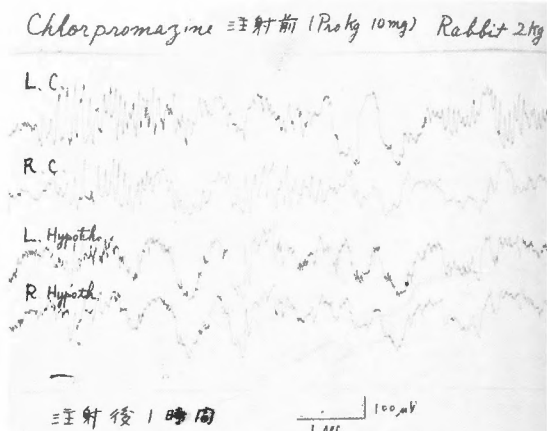 Chlorpromazine 注射前 (Pro kg 10mg) Rabbit 2kg
L. C.
R. C
L. Hypoth.
R Hypoth.
注射後 1 時間
100μV